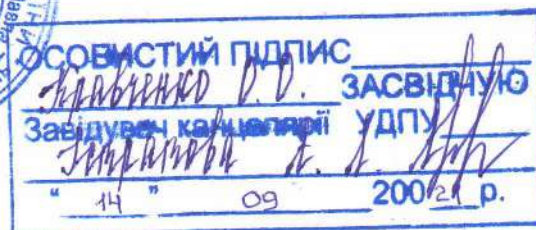 ОСОБИСТИЙ ПІДПИС
Кравченко О. О. ЗАСВІДЧУЮ
Завідувач канцелярії УДПУ
А. А.
" 14 " 09 20021 р.